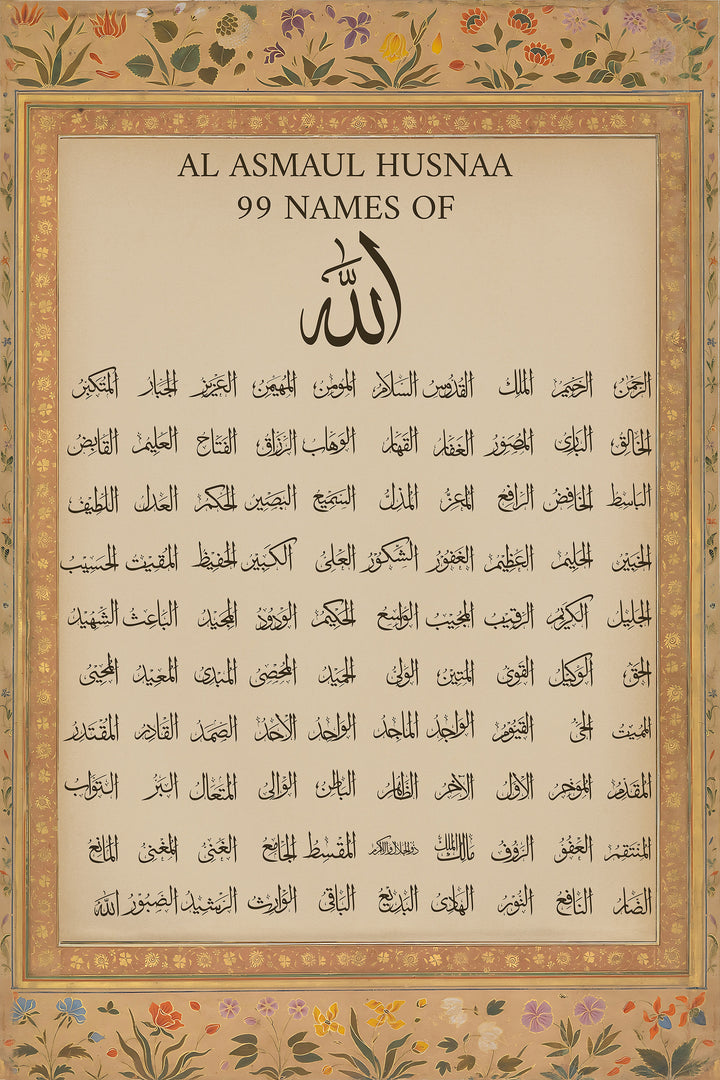 AL ASMAUL HUSNAA
99 NAMES OF
الله
الرحمن الرحيم الملك القدوس السلام المومن المهيمن العزيز الجبار المتكبر
الخالق البارى المصور الغفار القهار الوهاب الرزاق الفتاح العليم القابض
الباسط الخافض الرافع المعز المذل السميع البصير الحكم العدل اللطيف
الخبير الحليم العظيم الغفور الشكور العلى الكبير الحفيظ المقيت الحسيب
الجليل الكريم الرقيب المجيب الواسع الحكيم الودود المجيد الباعث الشهيد
الحق الوكيل القوى المتين الولى الحميد المحصى المبدى المعيد المحيى
المميت الحى القيوم الواجد الماجد الواحد الاحد الصمد القادر المقتدر
المقدم الموخر الاول الاخر الظاهر الباطن الوالى المتعال البر التواب
المنتقم العفو الرؤف مالك الملك ذو الجلال والاكرام المقسط الجامع الغنى المغنى المانع
الضار النافع النور الهادى البديع الباقى الوارث الرشيد الصبور الله